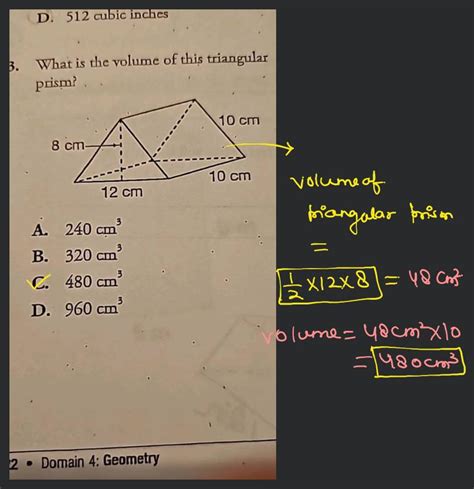 D. 512 cubic inches
3. What is the volume of this triangular
prism?
10 cm
8 cm
10 cm
12 cm
A. 240 cm³
B. 320 cm³
C. 480 cm³
D. 960 cm³
2 • Domain 4: Geometry
volume of
triangular prism
=
1/2 ×12×8 = 48 cm²
volume = 48cm²×10
= 480cm³